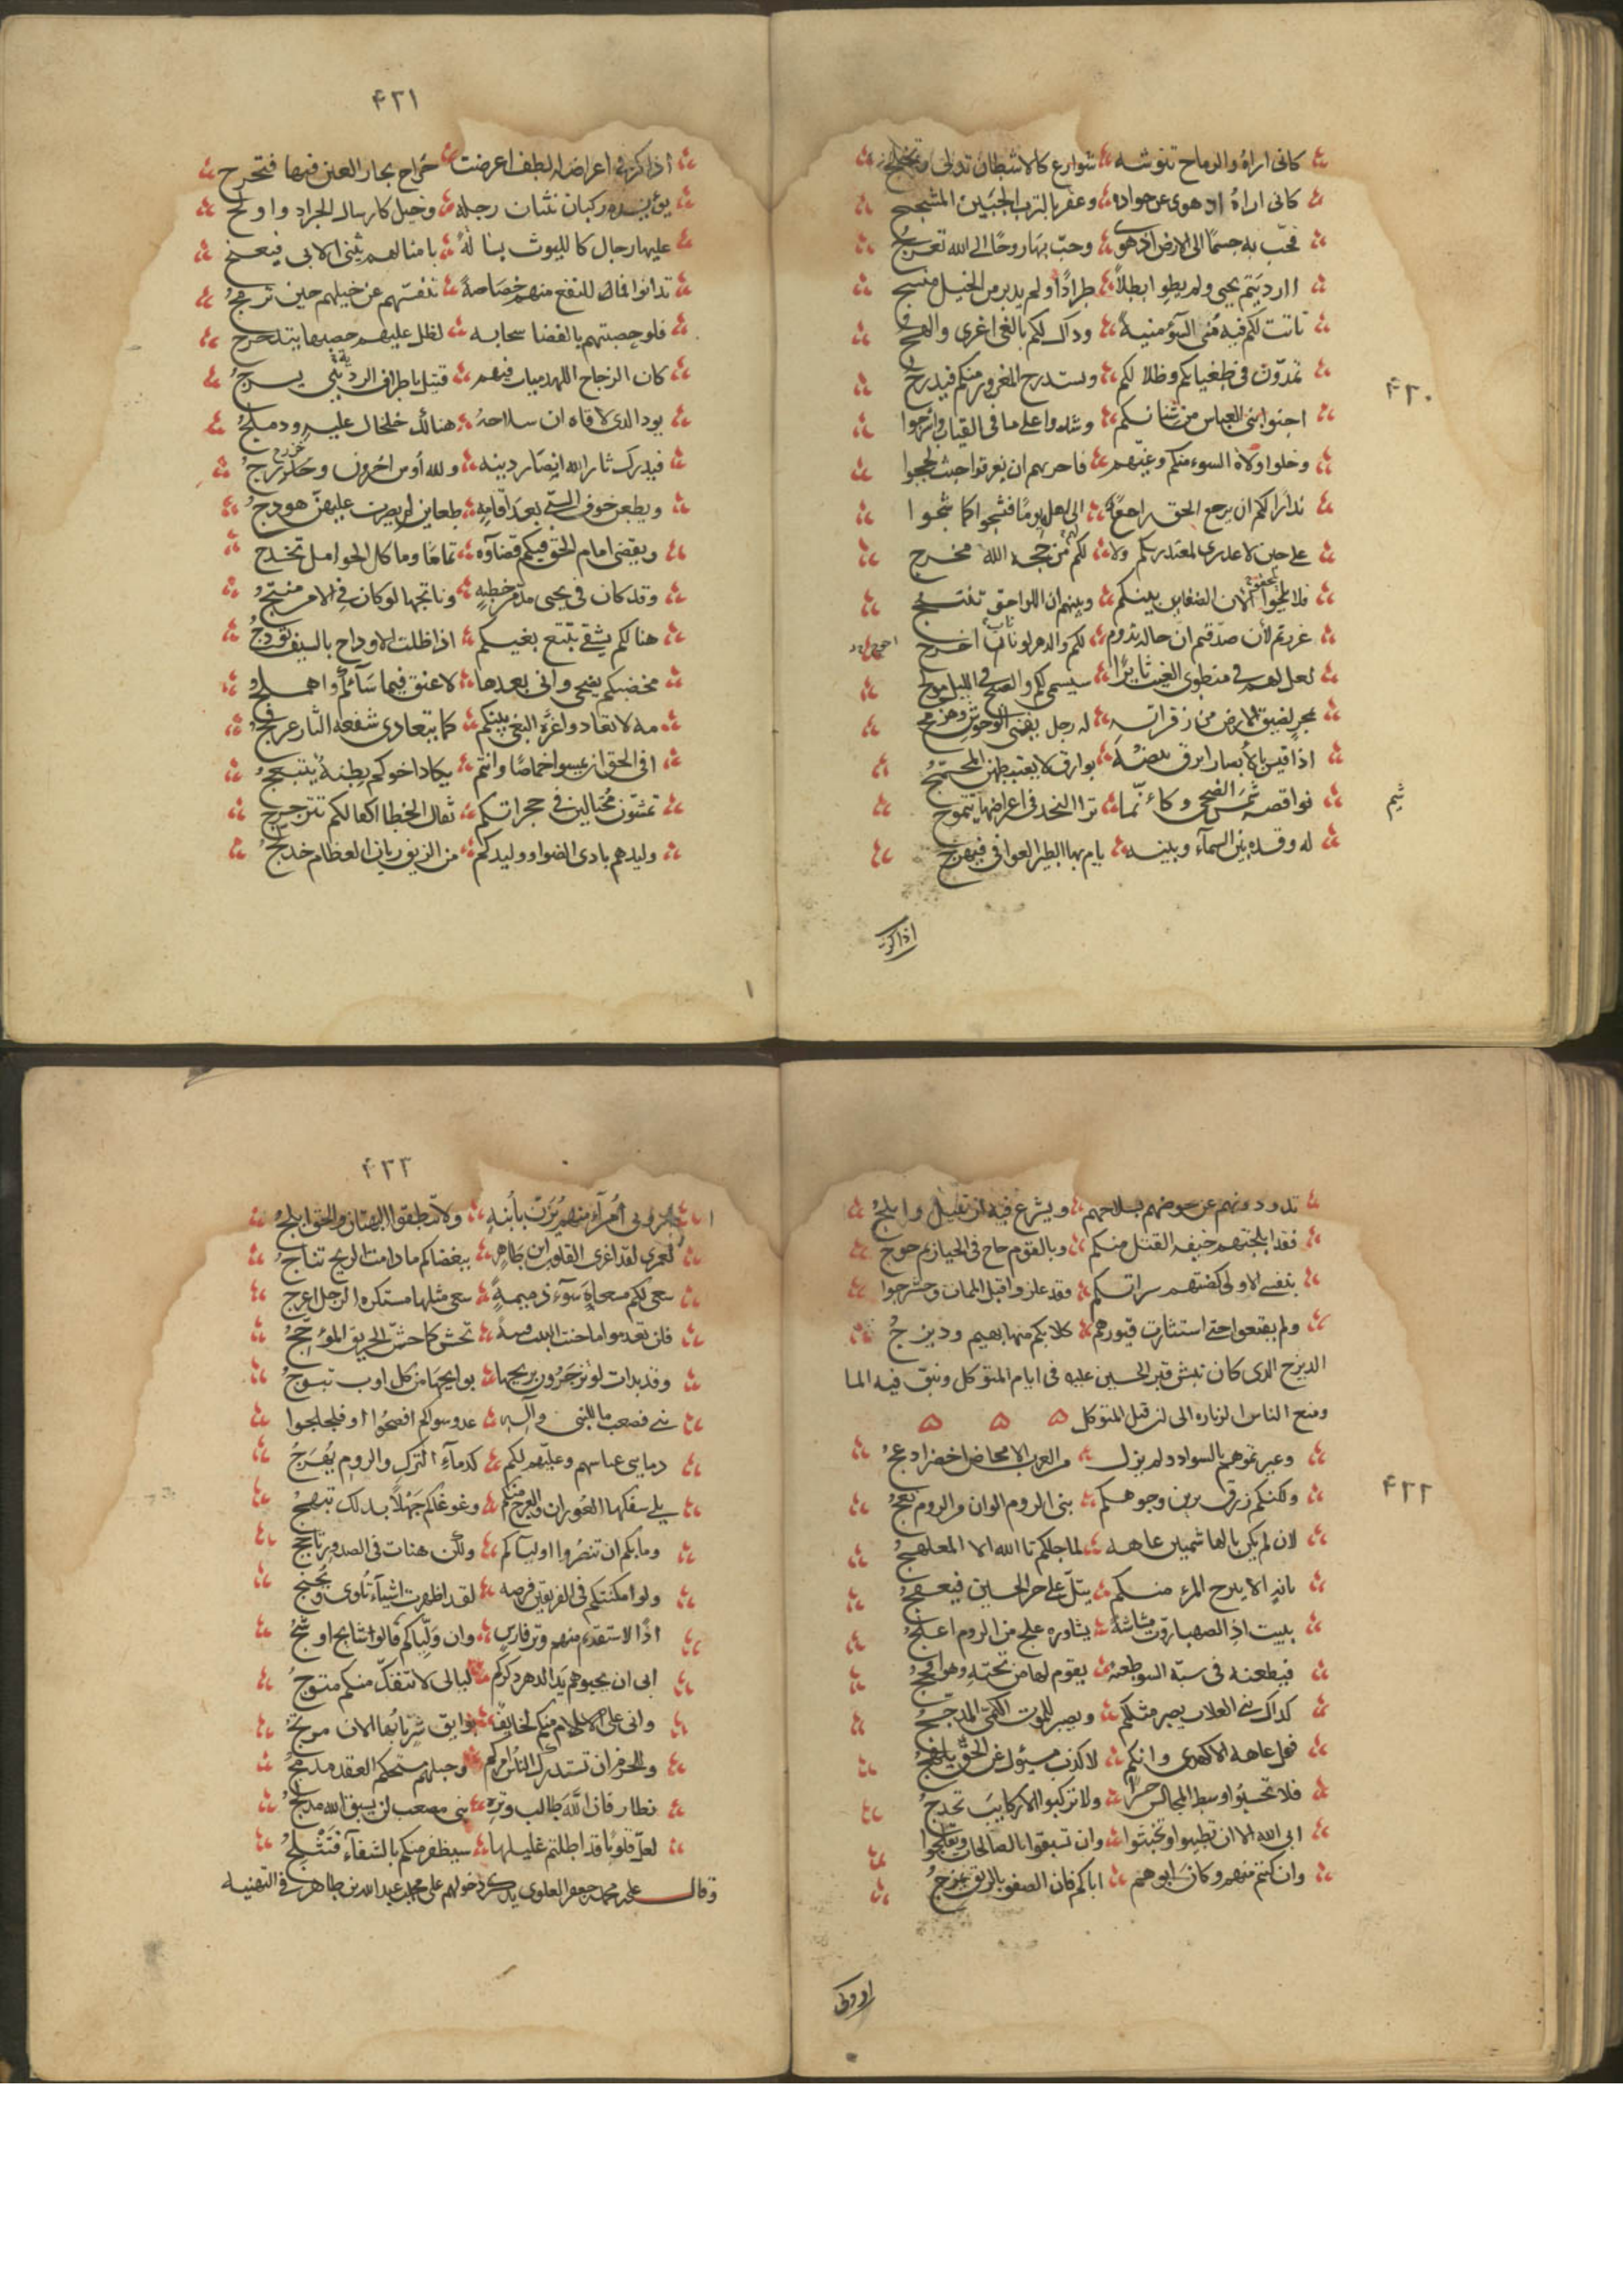 كانى اراه والرماح تنوشه شوارع كالاشطان تدلى وتخلج
كانى اراه اد هوى عن جواده وعفر بالترب الجبين المشجج
فحبّ به جسمًا الى الارض اذ هوى وحبّ بها روحًا الى الله تعرج
اارديتم يحيى ولم يطو ايطلًا طرادًا ولم يدبر من الخيل منسج
تاتت لكم فيه منى السؤ منية وذاك لكم بالغى اغرى والهج
تمدّون فى طغيانكم وظلالكم ويستدرج المغرور منكم فيدرج
اجنوا بنى العباس من شنانكم وشدوا على ما فى العياب واشرجوا
وخلوا ولاة السوء منكم وغيّهم فاحر بهم ان يغرقوا حيث لججوا
نذارًا لكم ان يرجع الحق راجعًا الى اهله يومًا فتشجوا كما شجوا
على حين لا عذرى لمعتذريكم ولا لكم من حجه الله مخرج
فلا تلحقوا الان الضغاين بينكم وبينهم ان اللواحق تنتج
غررتم لأن صدّقتم ان حاله تدوم لكم والدهر لونان اخرج
لعل لهم فى منطوى الغيب ثايرًا سيسمى لكم والصبح فى الليل مولج
بمجر تضيق الارض من زفراته له زجل ينفى الوحوش وهزمج
اذا قيس بالأبصار ابرق بيضه بوارق لا يسطيعهن المحمّج
تواقصه شمس الضحى وكأنّما ترا البحر فى اعراضها يتموج
شيم
له وقده بين السماء وبينه يلم بها الطير العوافى فيهرج
اذا كرّ
۴۲۰
۴۲۱
اذا كرّ فى اعراضه الطرف اعرضت حراج يحار العين فيها فتحرج
يؤيده ركبان ثنتان رجلة وخيل كارسال الجراد واولج
عليها رجال كالليوث بسالةً بامثالهم يثنى الابى فيعنج
تدانوا فما للنقع منهم خصاصةً تنفسهم عن خيلهم حين ترهج
فلو حصبتهم بالفضا سحابه لظل عليهم حصبها يتدحرج
كان الزجاج اللهذميات فيهم فتيل باطراف الردينى يسرج
يود الذى لاقاه ان سلاحهُ هنالك خلخال عليه ودملج
فيدرك ثار الله انصار دينه ولله اوس اخرون وخزرج
ويظعن خوف السبى بعد اقامةٍ ظعاين لم يضرب عليهن هودج
ويقضى امام الحق فيكم قضاءه تمامًا وما كل الحوامل تخدج
وقد كان فى يحيى مذمّر خطبةٍ وناتجها لو كان فى الامر منتج
هنالكم يشفى تبيغ بغيكم اذا ظلت الاوداج بالسيف تودج
محضتكم نصحى وانى بعدها لاعنق فيما ساءكم واهملج
مه لا تعادوا غرّة البغى بينكم كما يتعادى شعله النار عرفج
افى الحق ان يمسوا خماصًا وانتم يكاد اخوكم بطنةً يتبعج
تمشّون مختالين فى حجراتكم ثقال الخطا اكفالكم تترجرج
وليدهم بادى الضوا ووليدكم من الريف ريان العظام خدلّج
تذودونهم عن حوضهم بسلاحهم ويشرع فيه ارتبيل وابلج
فقد الجمتهم خيفه القتل منكم وبالقوم حاج فى الحيازيم حوج
بنفسى الاولى كظتهم سراتكم وقد علزوا قبل الممات وحشرجوا
ولم يقنعوا حتى استثارت قبورهم كلابكم منها بهيم وديزج
الديزج الذى كان نبش قبر الحسين عليه فى ايام المتوكل وبثق فيه الما
ومنع الناس الزياره الى ان قتل المتوكل
وعيرتموهم بالسواد ولم يزل من العرب الامحاض اخضر ادعج
ولكنكم زرق يزين وجوهكم بنى الروم الوان من الروم نعج
۴۲۲
لان لم يكن بالهاشميين عاهه لما جلكم تالله الا المعلهج
بايةِ الا يبرح المرء منكم يتلّ على حر الجبين فيعفج
يبيت اذا الصهبا روّت مشاشه يثاوره علج من الروم اعلج
فيطعنه فى سبّة السؤ طعنة يقوم لها من تحته وهو افحج
كذاك بنى العلات يصبر مثلكم ويصبر للموت الكمىّ المدجج
فهل عاهه الا كهذى وانكم لاكذب مسئول عن الحق يلهج
فلا تجلسوا وسط المجالس حسّرا ولا تركبوا الا ركايب تحدج
ابى الله الا ان تطيبوا وتخبثوا وان تسبقوا بالصالحات وتفلجوا
وان كنتم منهم وكان ابوهم اباكم فان الصفو بالرنق يمزج
ارونى
۴۲۳
ارونى امرًا منهم يُزَنّ بأُبنةٍ ولا تنطقوا البهتان والحق ابلج
لعمرى لقد اغرى القلوب ابن طاهر ببغضاكم ما دامت الريح تنأج
سعى لكم مسعاة سوء ذميمةٍ سعى مثلها مستكره الرجل اعرج
فلن تعدموا ما حنت النيب فتنةً تحش كما حشّ الحريق المؤجج
وقد بدات لو تزجرون بريحها بوايجها من كل اوب تبوج
بنى مصعب ما للنبى وآله عدو سواكم افصحوا او فلجلجوا
دما بنى عباسهم وعليّهم لكم كدماء الترك والروم يُهرَجُ
يلى سفكها العوران والعرج منكم وغوغاكم جهلًا بذلك تبهج
وما بكم ان تنصروا اولياكم ولكن هنات فى الصدور تاجج
ولو امكنتكم فى الفريقين فرصه لقد اظهرت اشياء تلوى وتحنج
اذًا لاستقدتم منهم وتر فارسٍ وان وليّاكم قالوا شايج اوشج
ابى ان يحبوهم يد الدهر ذكركم ليالى لا تنفك منكم متوج
وانى على الاسلام منكم لخايف بوايق شتى بابها الان مرتج
وللحزم ان تستدرك الناس امركم وحبلهم مستحكم العقد مدمج
نظار فان الله طالب وتره بنى مصعب لن يسبق الله مدلج
لعلّ قلوبًا قد اطلتم غليلها سيظفر منكم بالشفاء فتثلج
وقال على بن محمد بن جعفر العلوى يذكر دخولهم على محمد بن عبد الله بن طاهر فى التهنيه